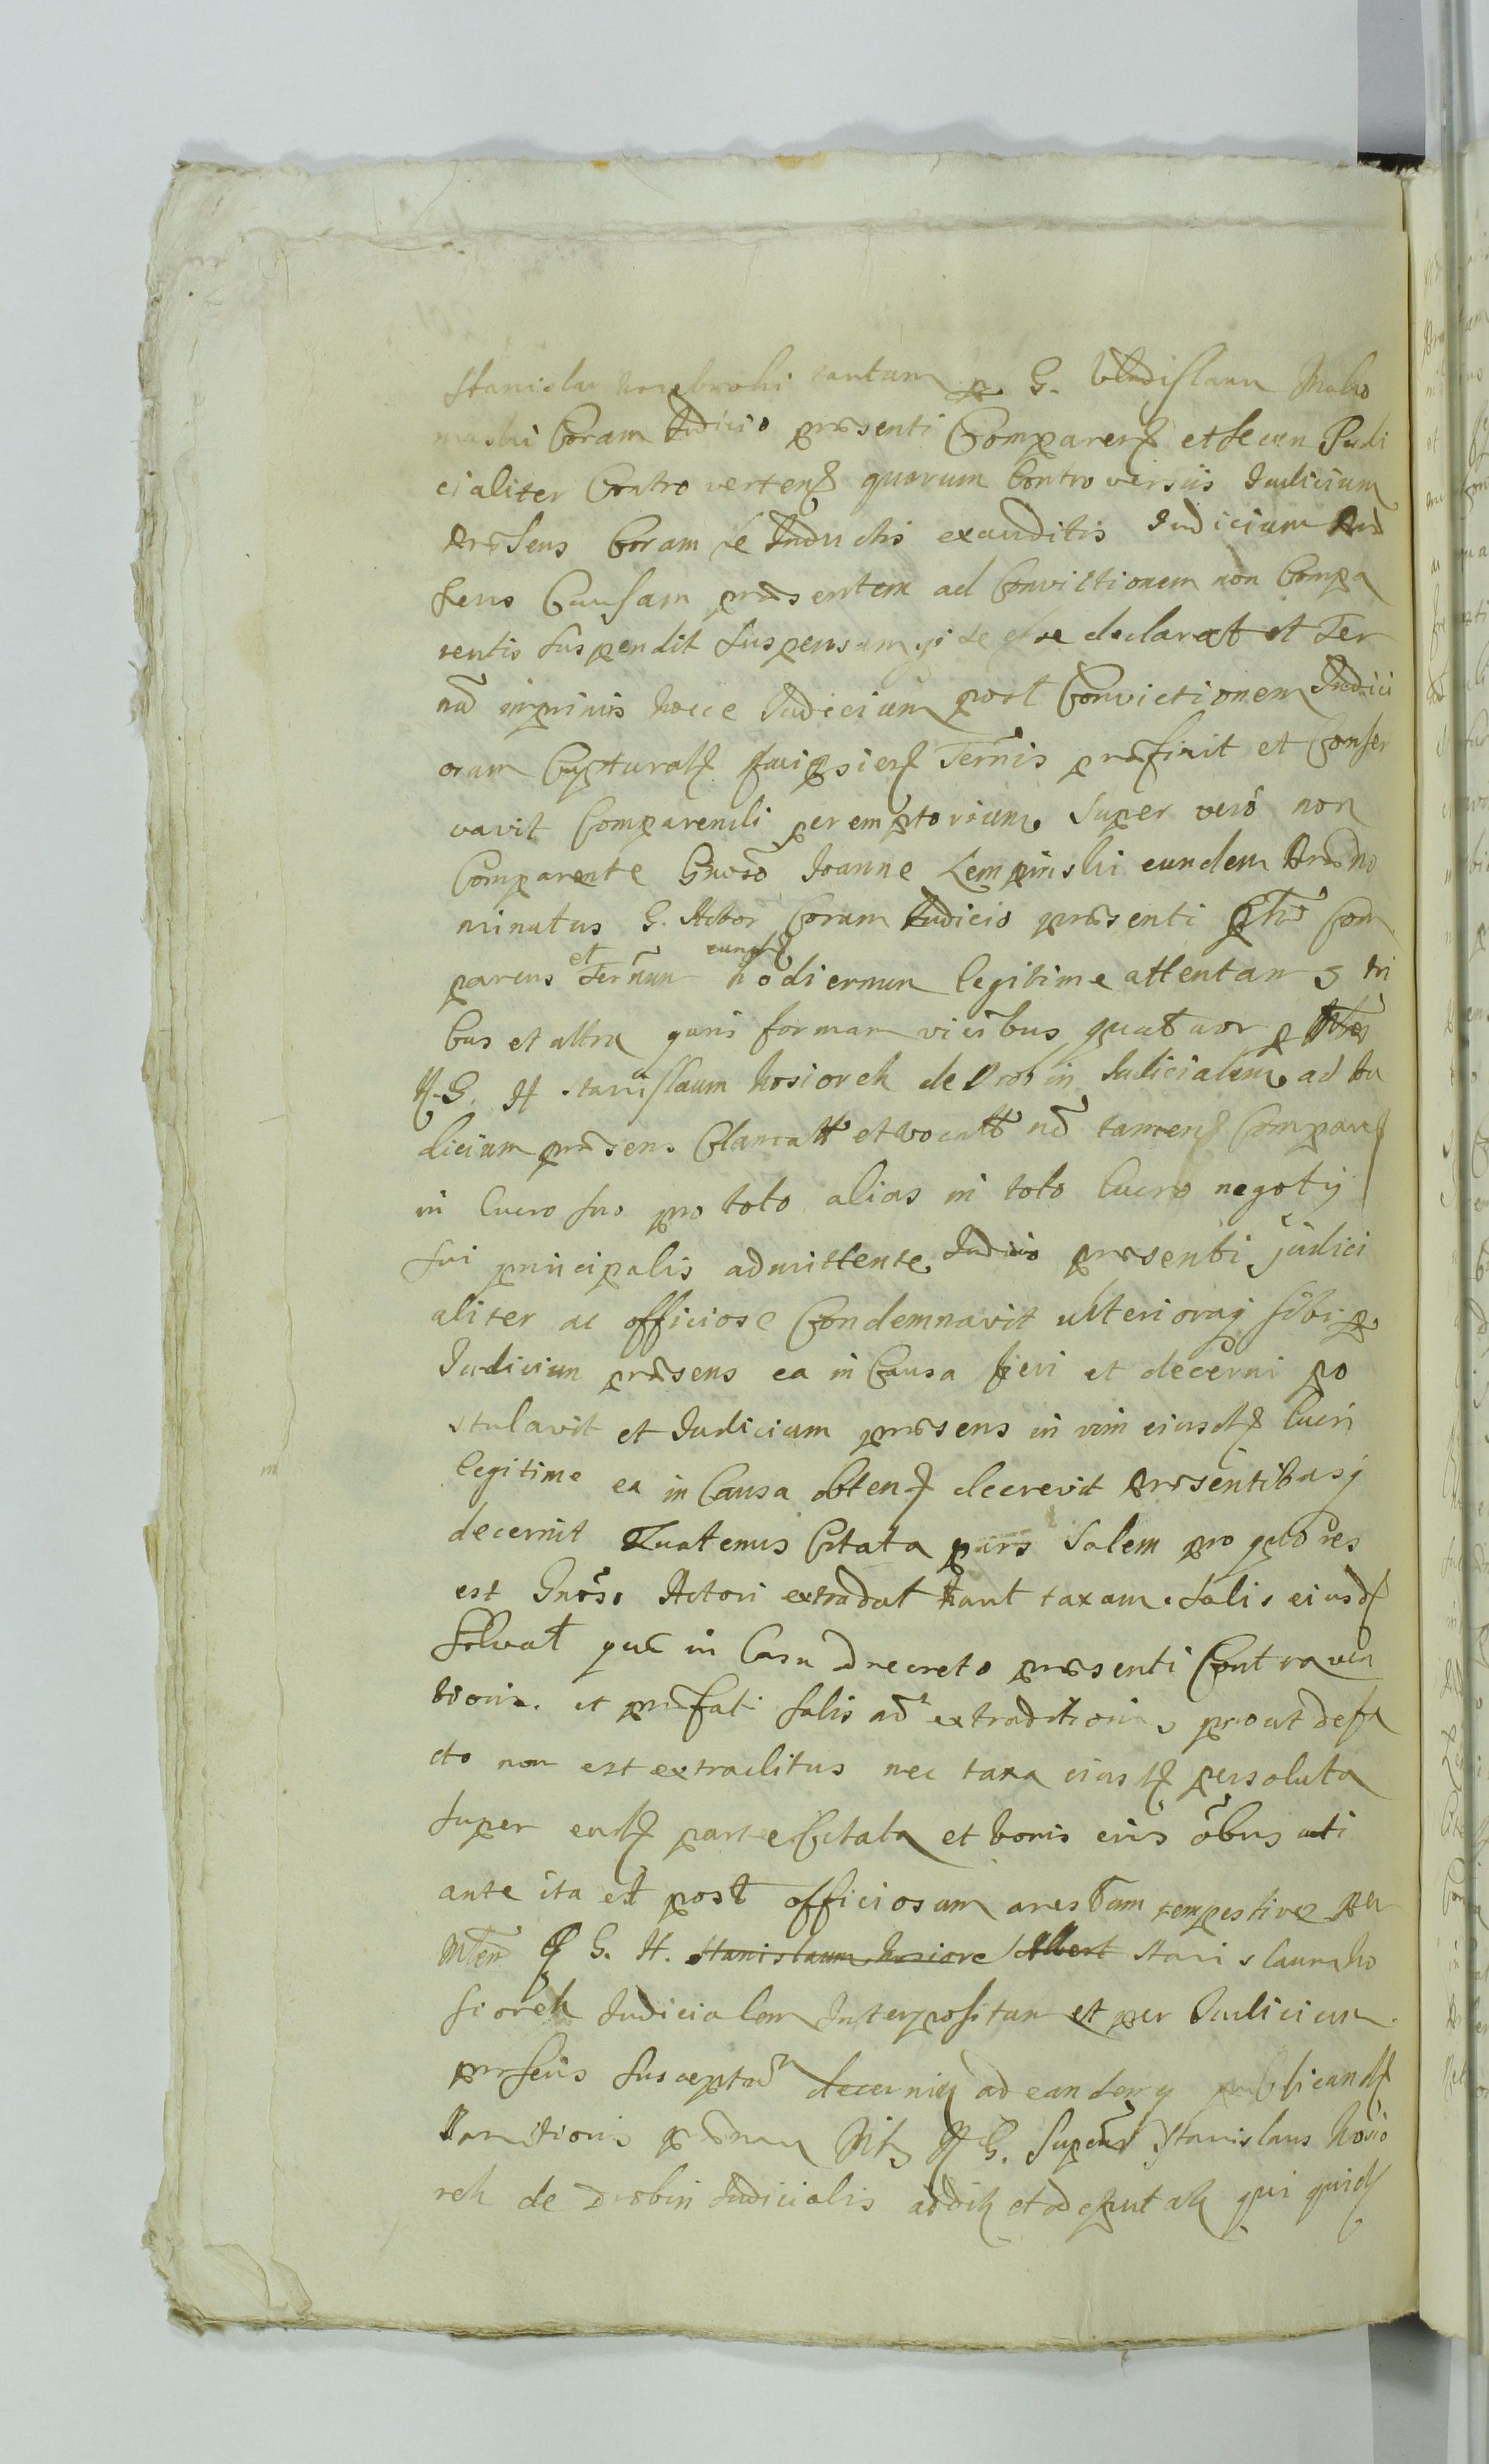 Stanislau cautam G. Vladislaum Mako
maski Coram Judicio præsenti Comparen et secum Judi
cialiter Controverten quarum Controversiis Judicium
Præsens Coram se Inductis exauditis Judicium Præ
sens Causam præsentem ad Convictionem non Compa
rentis suspendit suspensamq; se esse declarat et Ter
num inprimis hocce Judicium post Convictionem Judici
orum Captural Ternis præfixit et Conser
vavit Comparendi peremptorium. Super vero non
Comparente Gnoso Joanne Lempinski eundem Præno
minatus G. Actor Coram Judicio præsenti Com
parens et Ternum eund hodiernum legitime attentan tri
bus et altra juris formam vicibus quatuor
G. H Stanislaum kosiorek de Drobin Judicialem ad Ju
dicium præsens Clamatt et vocatt nō tamen Comparen
in lucro suo pro toto alias in toto lucro negotij
sui principalis admittente Judicio præsenti judici
aliter ac officiose Condemnavit ulterioraq; sibi p
Judicium præsens ea in Causa fieri et decerni po
stulavit et Judicium præsens in vim eiusd lucri
legitime ea in Causa obten decrevit Præsentibusq;
decernit Quatenus Citata pars Salem pro quo res
est Gnoso Actori extradat taxam salis eiusd
solvat que in Casu Decreto præsenti Contraven
tionis et præfati salis nō extraditionis prout defa
cto non est extraditus nec taxa eiusd persoluta
super eand parte Citata et bonis eius ōbus uti
ante ita et post officiosam arestam tempestive per
Mtem G. H. Stanislaum kosiore Albert Stanislaum ko
siorek Judicialem Interpositam et per Judicium
præsens susceptam ad eandemq; publicand
Mtus G. Supenus Stanislaus kosio
rek de Drobin Judicialis addit et deputat qui quid